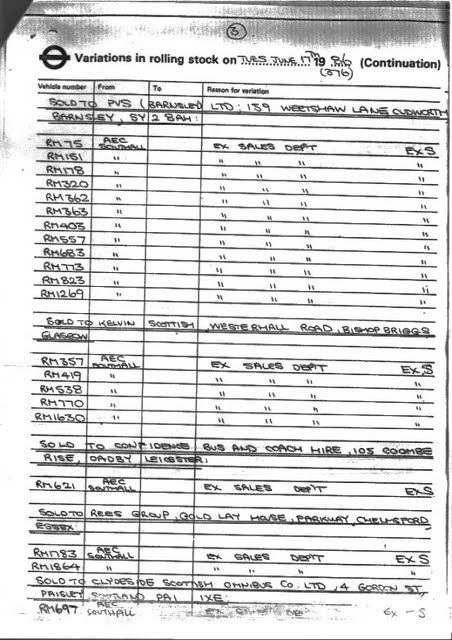 3
Variations in rolling stock on TUES JUNE 17TH 1986 (Continuation)
(376)
Vehicle number From To Reason for variation
SOLD TO PVS (BARNSLEY) LTD: 159 WEETSHAW LANE CUDWORTH
BARNSLEY, SY 2 8AH:
RM75 AEC SOUTHALL EX SALES DEPT EX S
RM151 " " " " "
RM178 " " " " "
RM320 " " " " "
RM362 " " " " "
RM363 " " " " "
RM403 " " " " "
RM557 " " " " "
RM683 " " " " "
RM773 " " " " "
RM823 " " " " "
RM1269 " " " " "
SOLD TO KELVIN SCOTTISH, WESTERHALL ROAD, BISHOPBRIGGS
GLASGOW
RM357 AEC SOUTHALL EX SALES DEPT EX S
RM419 " " " " "
RM538 " " " " "
RM770 " " " " "
RM1630 " " " " "
SOLD TO CONFIDENCE BUS AND COACH HIRE, 105 COOMBE
RISE, OADBY LEICESTER:
RM621 AEC SOUTHALL EX SALES DEPT EX S
SOLD TO REES GROUP, GOLD LAY HOUSE, PARKWAY, CHELMSFORD
ESSEX
RM1783 AEC SOUTHALL EX SALES DEPT EX S
RM1864 " " " " "
SOLD TO CLYDESIDE SCOTTISH OMNIBUS CO. LTD, 4 GORDON ST,
PAISLEY SCOTLAND PA1 1XE:
RM697 AEC SOUTHALL EX SALES DEPT EX - S